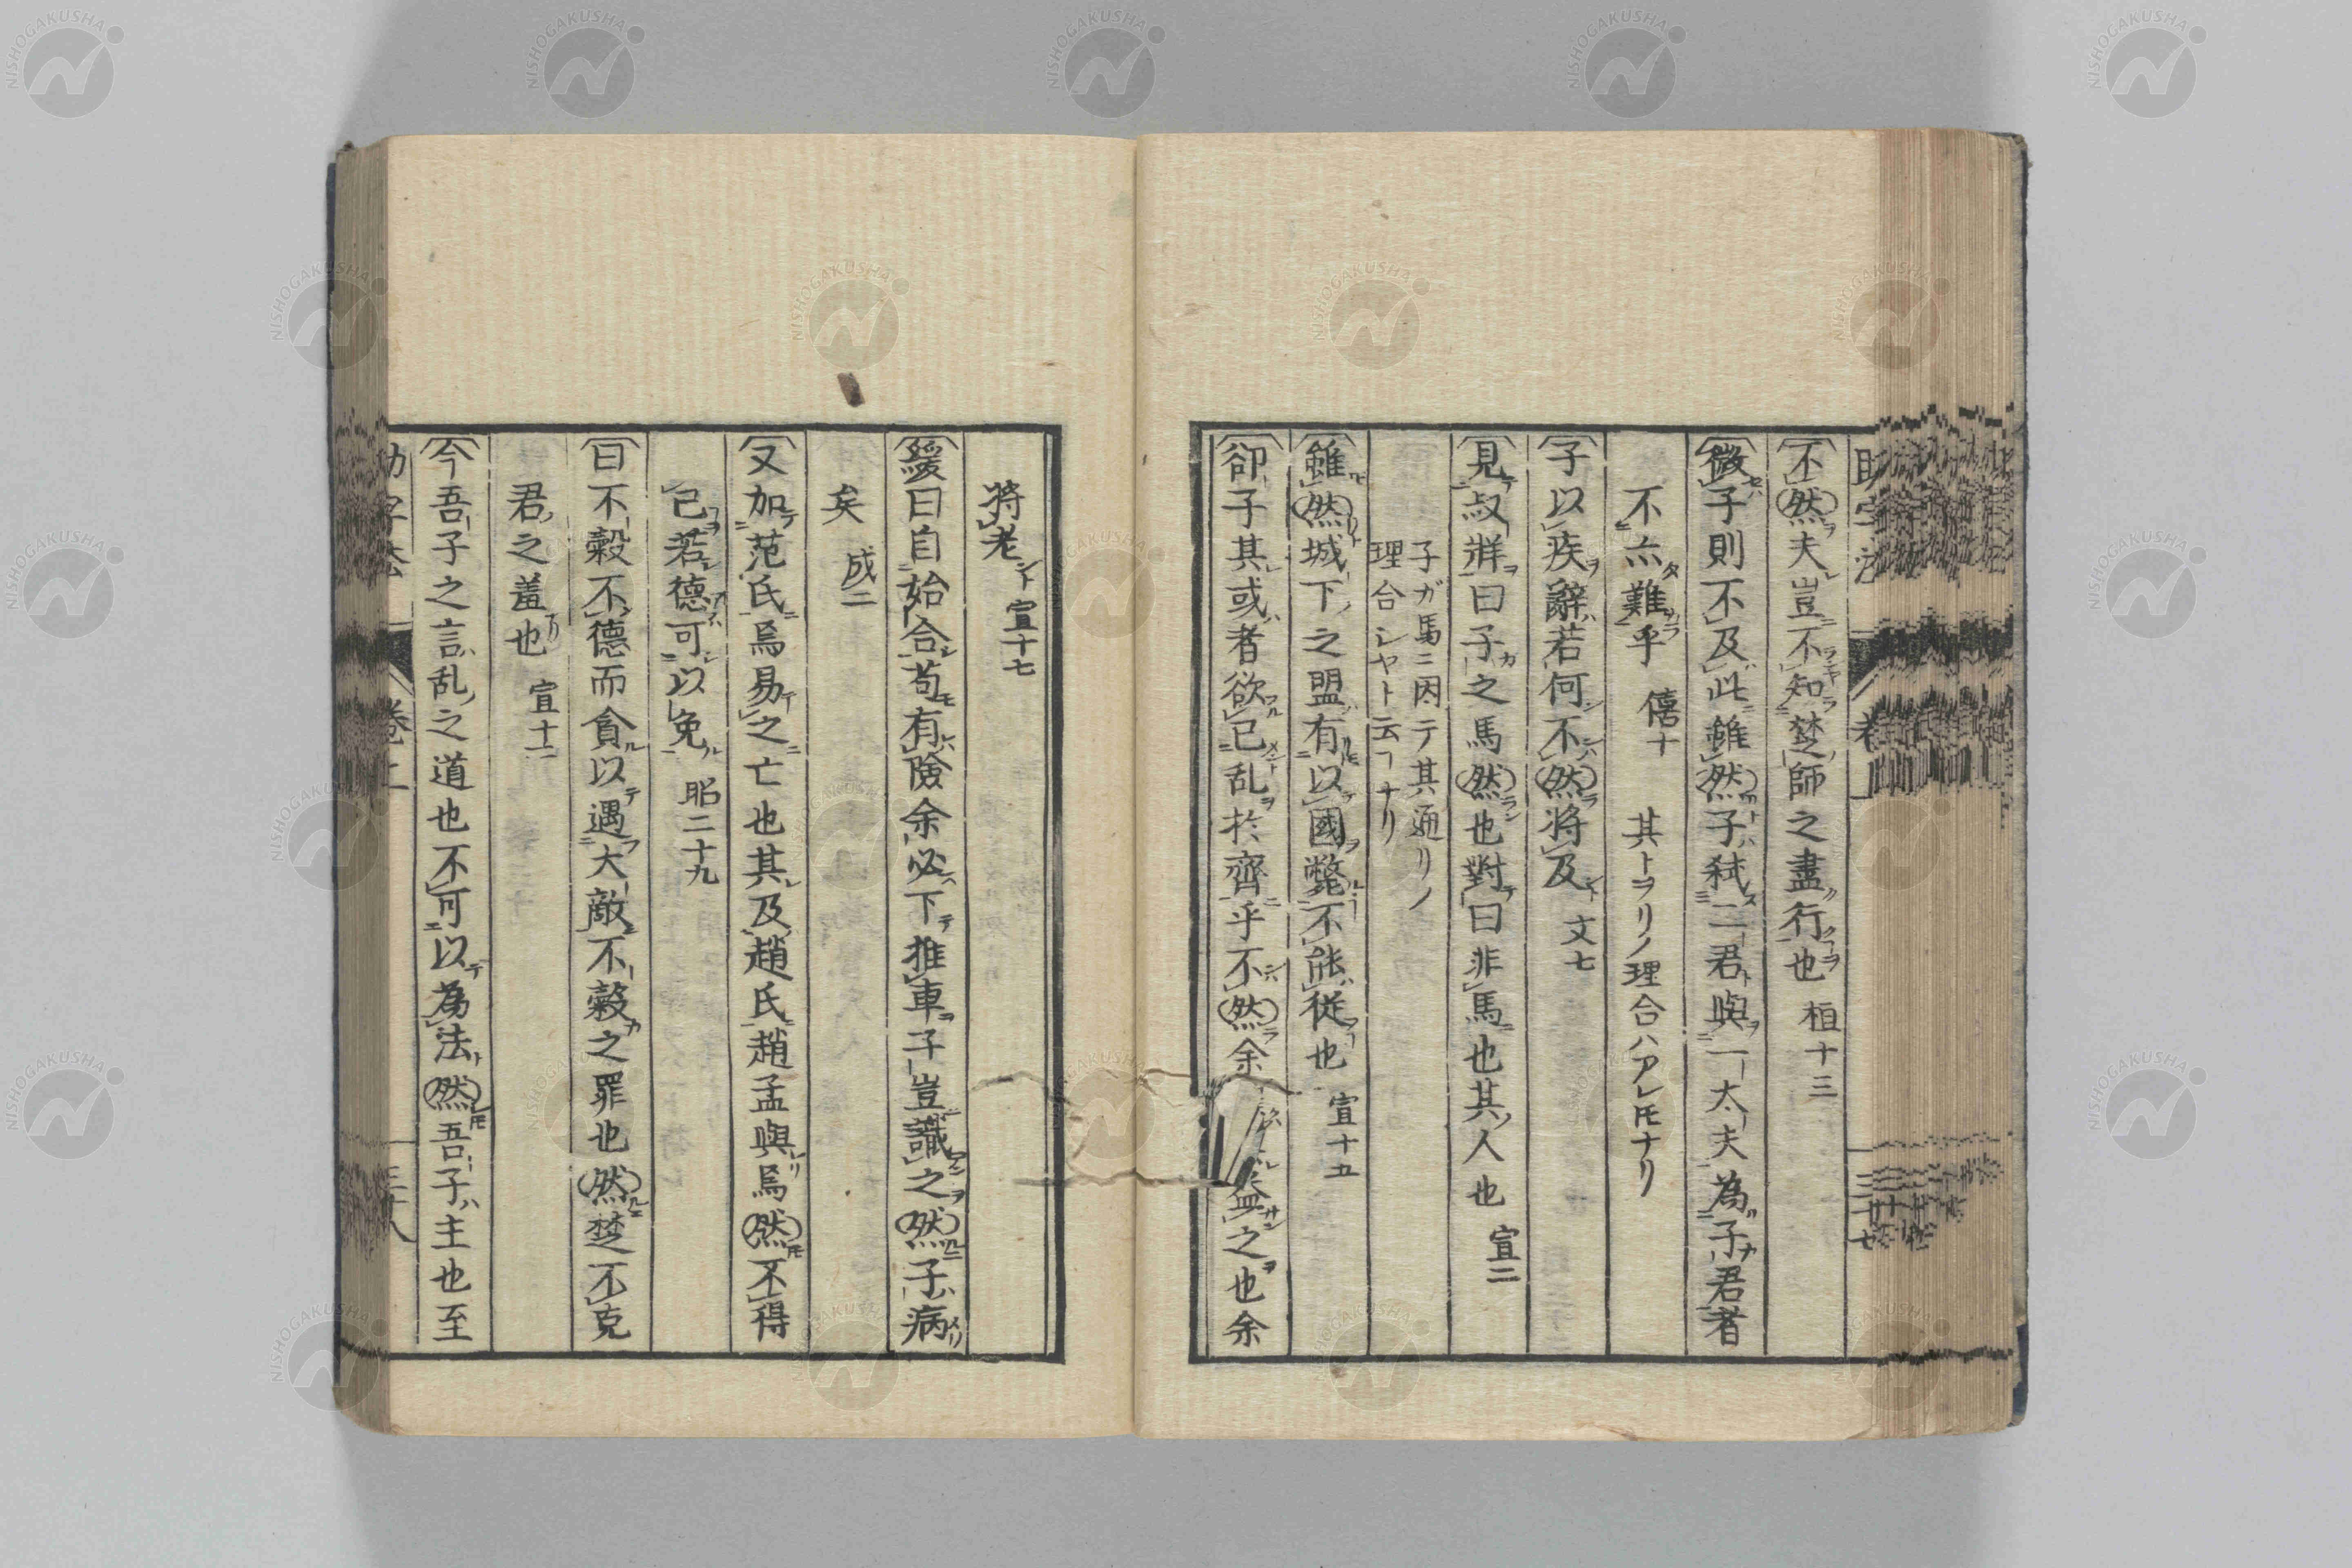 不然夫豈不知楚師之盡行也 桓十三
微子則不及此雖然子弑二君與一大夫為子君者
不亦難乎 僖十 其トヲリノ理合ハアレ𪜈ナリ
子以疾辭若何不然将及 文七
見叔牂曰子之馬然也對曰非馬也其人也 宣二
子ガ馬ニ因テ其通リノ
理合シヤト云フナリ
雖然城下之盟有以國斃不能従也 宣十五
郤子其或者欲已乱於齊乎不然余 益之也余
将老 宣十七
緩曰自始合苟有險余必下推車子豈識之然子病
矣 成二
又加范氏焉易之亡也其及趙氏趙孟與焉然不得
已若德可以免 昭二十九
曰不穀不德而貪以遇大敵不穀之罪也然楚不克
君之羞也 宣十二
今吾子之言乱之道也不可以為法然吾子主也至
NISHOGAKUSHA